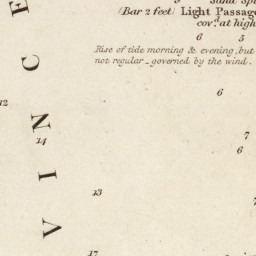 Sand Sp
(Bar 2 feet) Light Passage
cov.d at high
6 5
Rise of tide morning & evening, but
not regular - governed by the wind.
6
12
14
7
6
13
7
17
VINCE